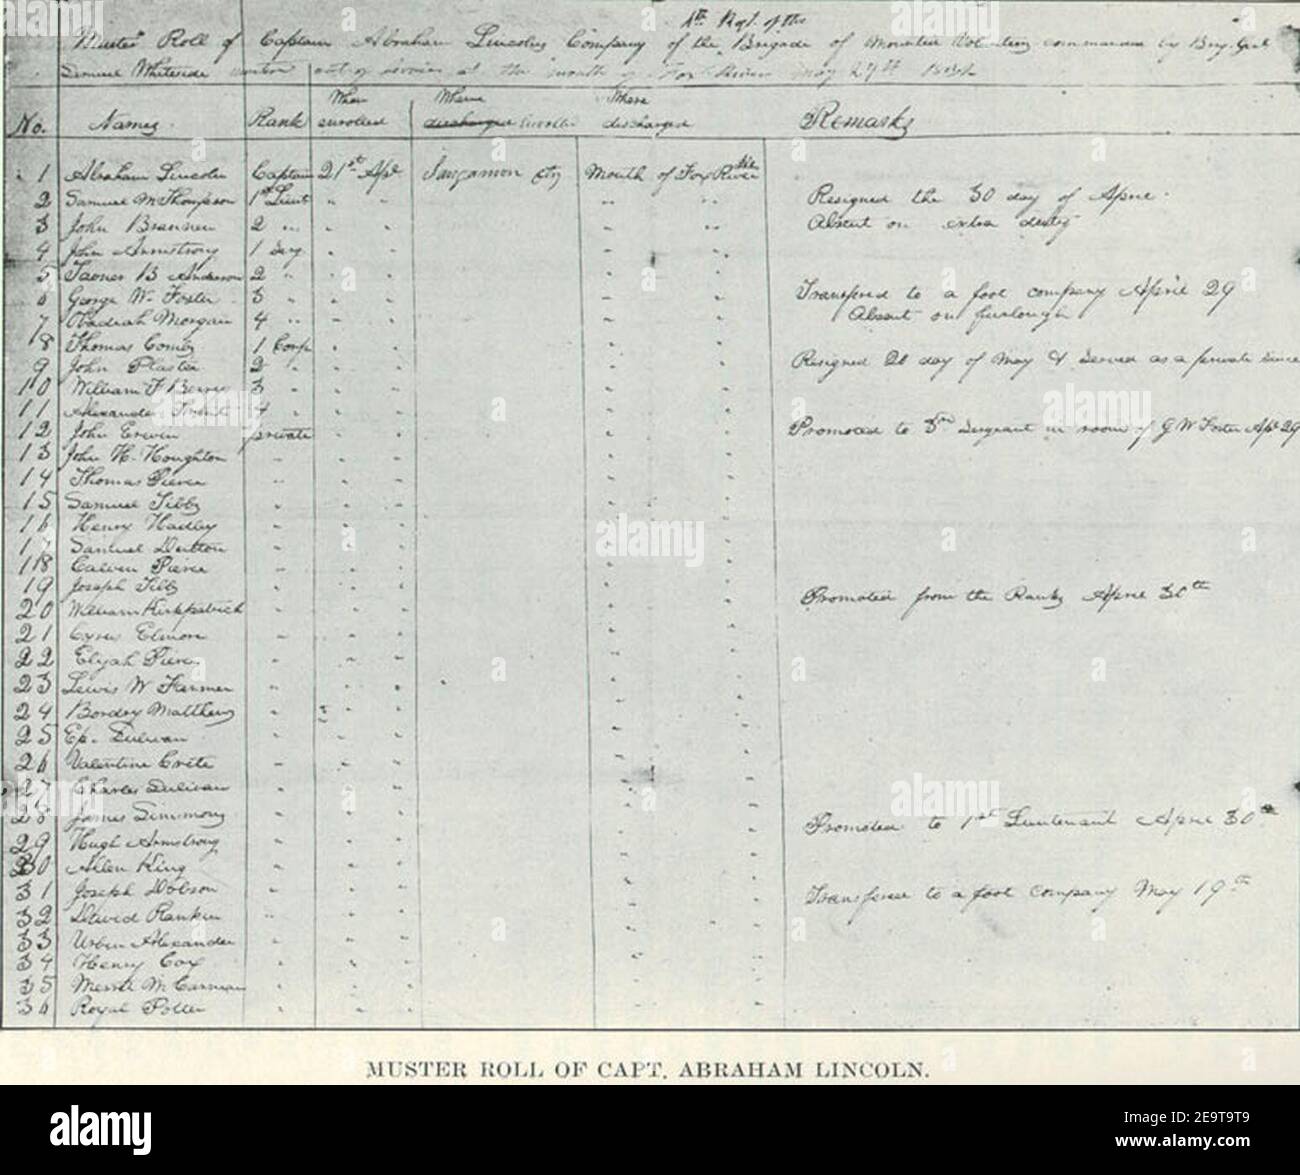 4th Regt. of the
Muster Roll of Captain Abraham Lincolns Company of the Brigade of Mounted Volunteers commanded by Brig. Genl
Samuel Whiteside out of service at the mouth of Fox River May 27th
No. Names Rank When enrolled Where discharged Where discharged Remarks
1 Abraham Lincoln Captain 21st Apl Sangamon cty Mouth of Fox River
2 Samuel M Thompson 1st Lieut " " " " Resigned the 30 day of April
3 John Brannen 2 " " " " " Absent on extra duty
4 John Armstrong 1 Serg " " " "
5 B Anderson 2 " " " " "
6 George W. Foster 3 " " " " " Transfered to a foot company April 29
7 Obadiah Morgan 4 " " " " " Absent on furlough
8 Thomas Combs 1 Corp " " " "
9 John Plaster 2 " " " " " Resigned day of May & served as a private since
10 William F Berry 3 " " " " "
11 Alexander Trent 4 " " " " "
12 John Erwin private " " " " Promoted to 3rd Sergeant in room of G W Foster Apl 29
13 John H. Houghton " " " " "
14 Thomas Pierce " " " " "
15 Samuel Tibbs " " " " "
16 Henry Hadley " " " " "
17 Samuel Dutton " " " " "
18 Calvin Pierce " " " " "
19 Joseph Tibbs " " " " "
20 William Kirkpatrick " " " " " Promoted from the Ranks April 30th
21 Cyrus Elmore " " " " "
22 Elijah Pierce " " " " "
23 Lewis W Farmer " " " " "
24 Bordry Matthews " " " " "
25 Ep. Sulivan " " " " "
26 Valentine Crete " " " " "
27 Charles Sulivan " " " " "
28 James Simmons " " " " "
29 Hugh Armstrong " " " " " Promoted to 1st Lieutenant April 30th
30 Allen King " " " " "
31 Joseph Dobson " " " " "
32 David Rankin " " " " " Transferred to a foot company May 19th
33 Urbin Alexander " " " " "
34 Henry Cox " " " " "
35 Merritt M Carman " " " " "
36 Royal Potter " " " " "
MUSTER ROLL OF CAPT. ABRAHAM LINCOLN.
alamy
Image ID: 2E9T9T9
www.alamy.com